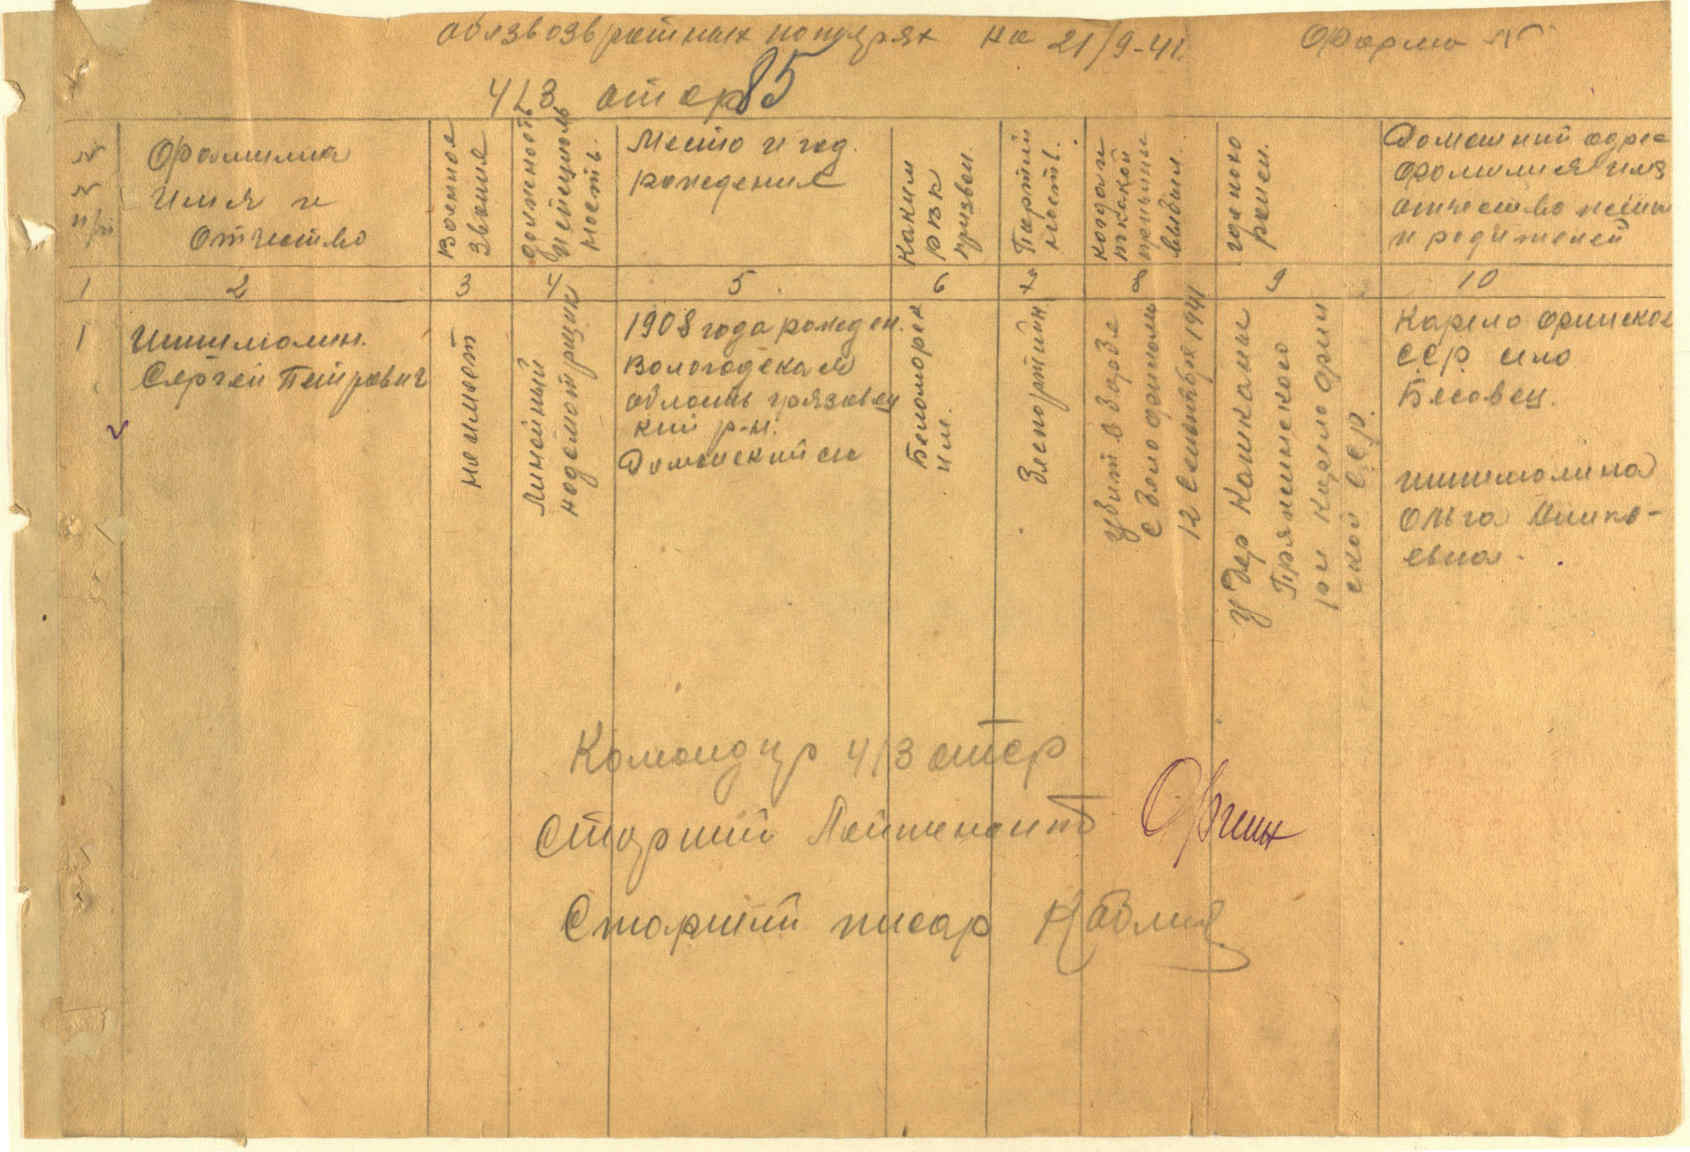 обезвозвратных потерях на 21/9-41. Форма №
413 отср 85
№ № п/п
Фамилия
Имя и
Отчество
Военное
звание
должность
и специаль
ность.
Место и год.
рождения
Каким
РВК
призван
Партий
ность.
когда и
по какой
причине
выбыл.
где похо
ронен.
Домашний адрес
фамилия имя
отчество жены
и родителей
1 2 3 4 5 6 7 8 9 10
1
Шишмолин.
Сергей Петрович
Линейный
надсмотрщик
1908 года рожден.
Вологодская
область грязовец
кий р-н.
Беломорск
им.
Беспартийный
убит
12 Сентября 1941
Пряжинского
р-н Карело фин
ской С.С.Р.
Карело финская
ССР село
Бесовец.
Шишмолина
Ольга
евна.
Командир 413 отср
Старший Лейтенант
Старший писар